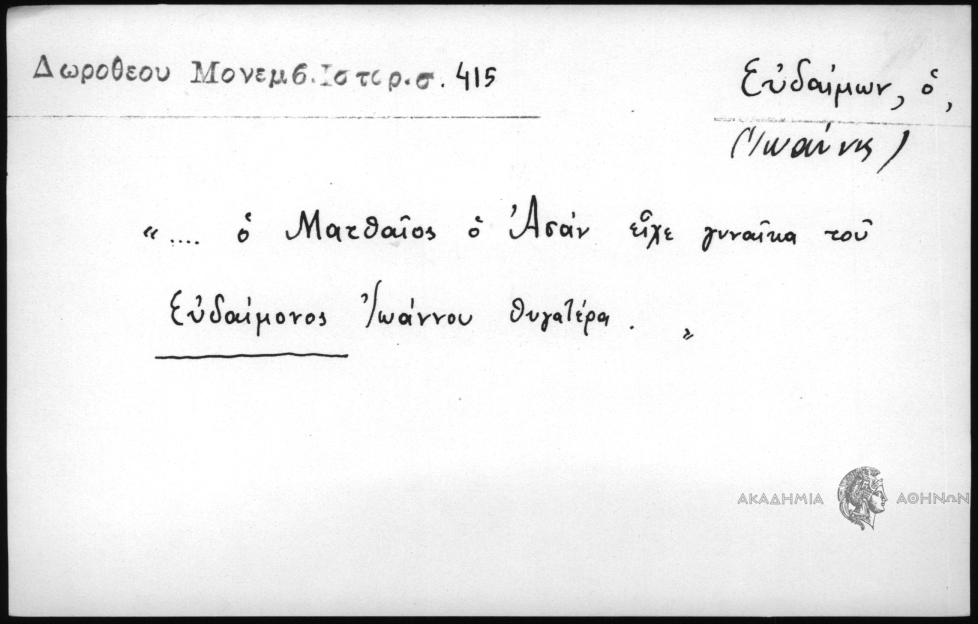 Δωροθεου Μονεμβ.Ιστορ.σ. 415
Εὐδαίμων, ὁ,
(Ἰωάννης)
«.... ὁ Ματθαῖος ὁ Ἀσάν εἶχε γυναῖκα τοῦ
Εὐδαίμονος Ἰωάννου θυγατέρα. »
ΑΚΑΔΗΜΙΑ ΑΘΗΝΩΝ